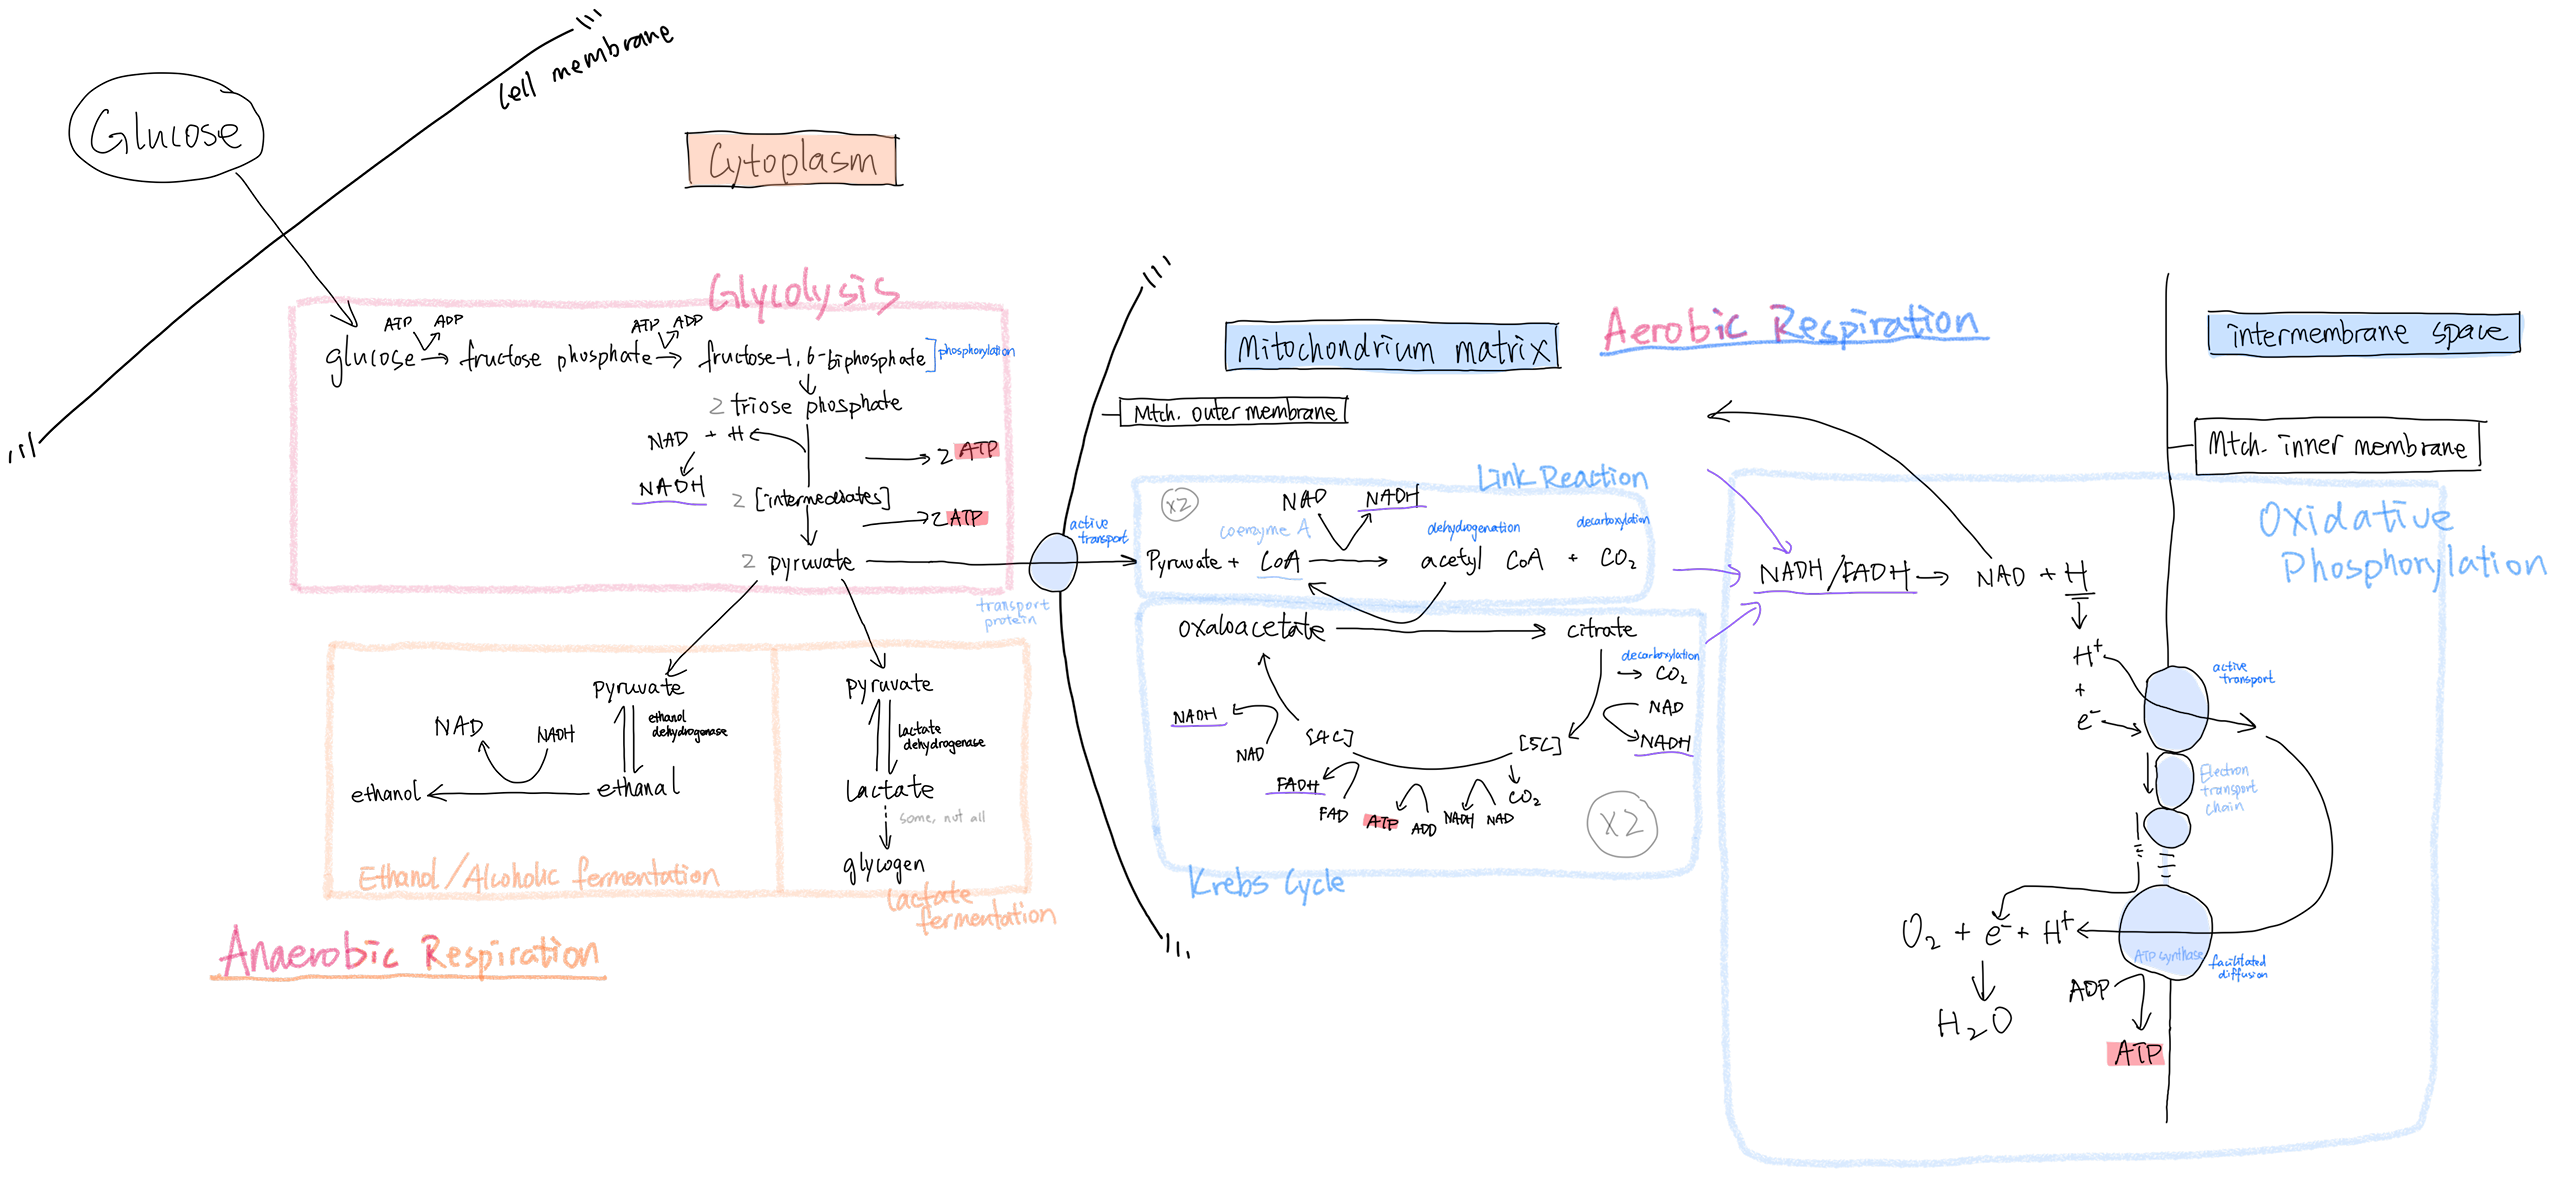 Cell membrane
Glucose
Cytoplasm
Glycolysis
ATP
ADP
ATP
ADP
glucose → fructose phosphate → fructose-1,6-biphosphate
phosphorylation
2 triose phosphate
NAD + H
2 ATP
NADH
2 [intermediates]
2 ATP
2 pyruvate
active transport
transport protein
pyruvate
ethanol dehydrogenase
NAD
NADH
ethanol
ethanal
Ethanol/Alcoholic fermentation
pyruvate
Lactate dehydrogenase
Lactate
some, not all
glycogen
Lactate fermentation
Anaerobic Respiration
Mitochondrium matrix
Mtch. outer membrane
Aerobic Respiration
Link Reaction
x2
NAD
NADH
coenzyme A
dehydrogenation
decarboxylation
Pyruvate + CoA → acetyl CoA + CO2
oxaloacetate
citrate
decarboxylation
→ CO2
NAD
NADH
NADH
NAD
[4C]
[5C]
FADH
FAD
ATP
ADD
NADH
NAD
CO2
x2
Krebs Cycle
intermembrane space
Mtch. inner membrane
Oxidative Phosphorylation
NADH/FADH → NAD + H
H+
+
e-
active transport
Electron transport chain
O2 + e- + H+
ATP synthase
facilitated diffusion
ADP
H2O
ATP